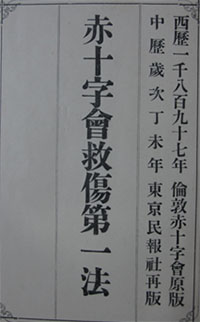 西歷一千八百九十七年 倫敦赤十字會原版
中歷歲次丁未年 東京民報社再版
赤十字會救傷第一法